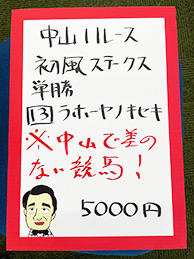 中山11レース
初風ステークス
単勝
13 ラホーヤノキセキ
※中山で差の
ない競馬!
5000円